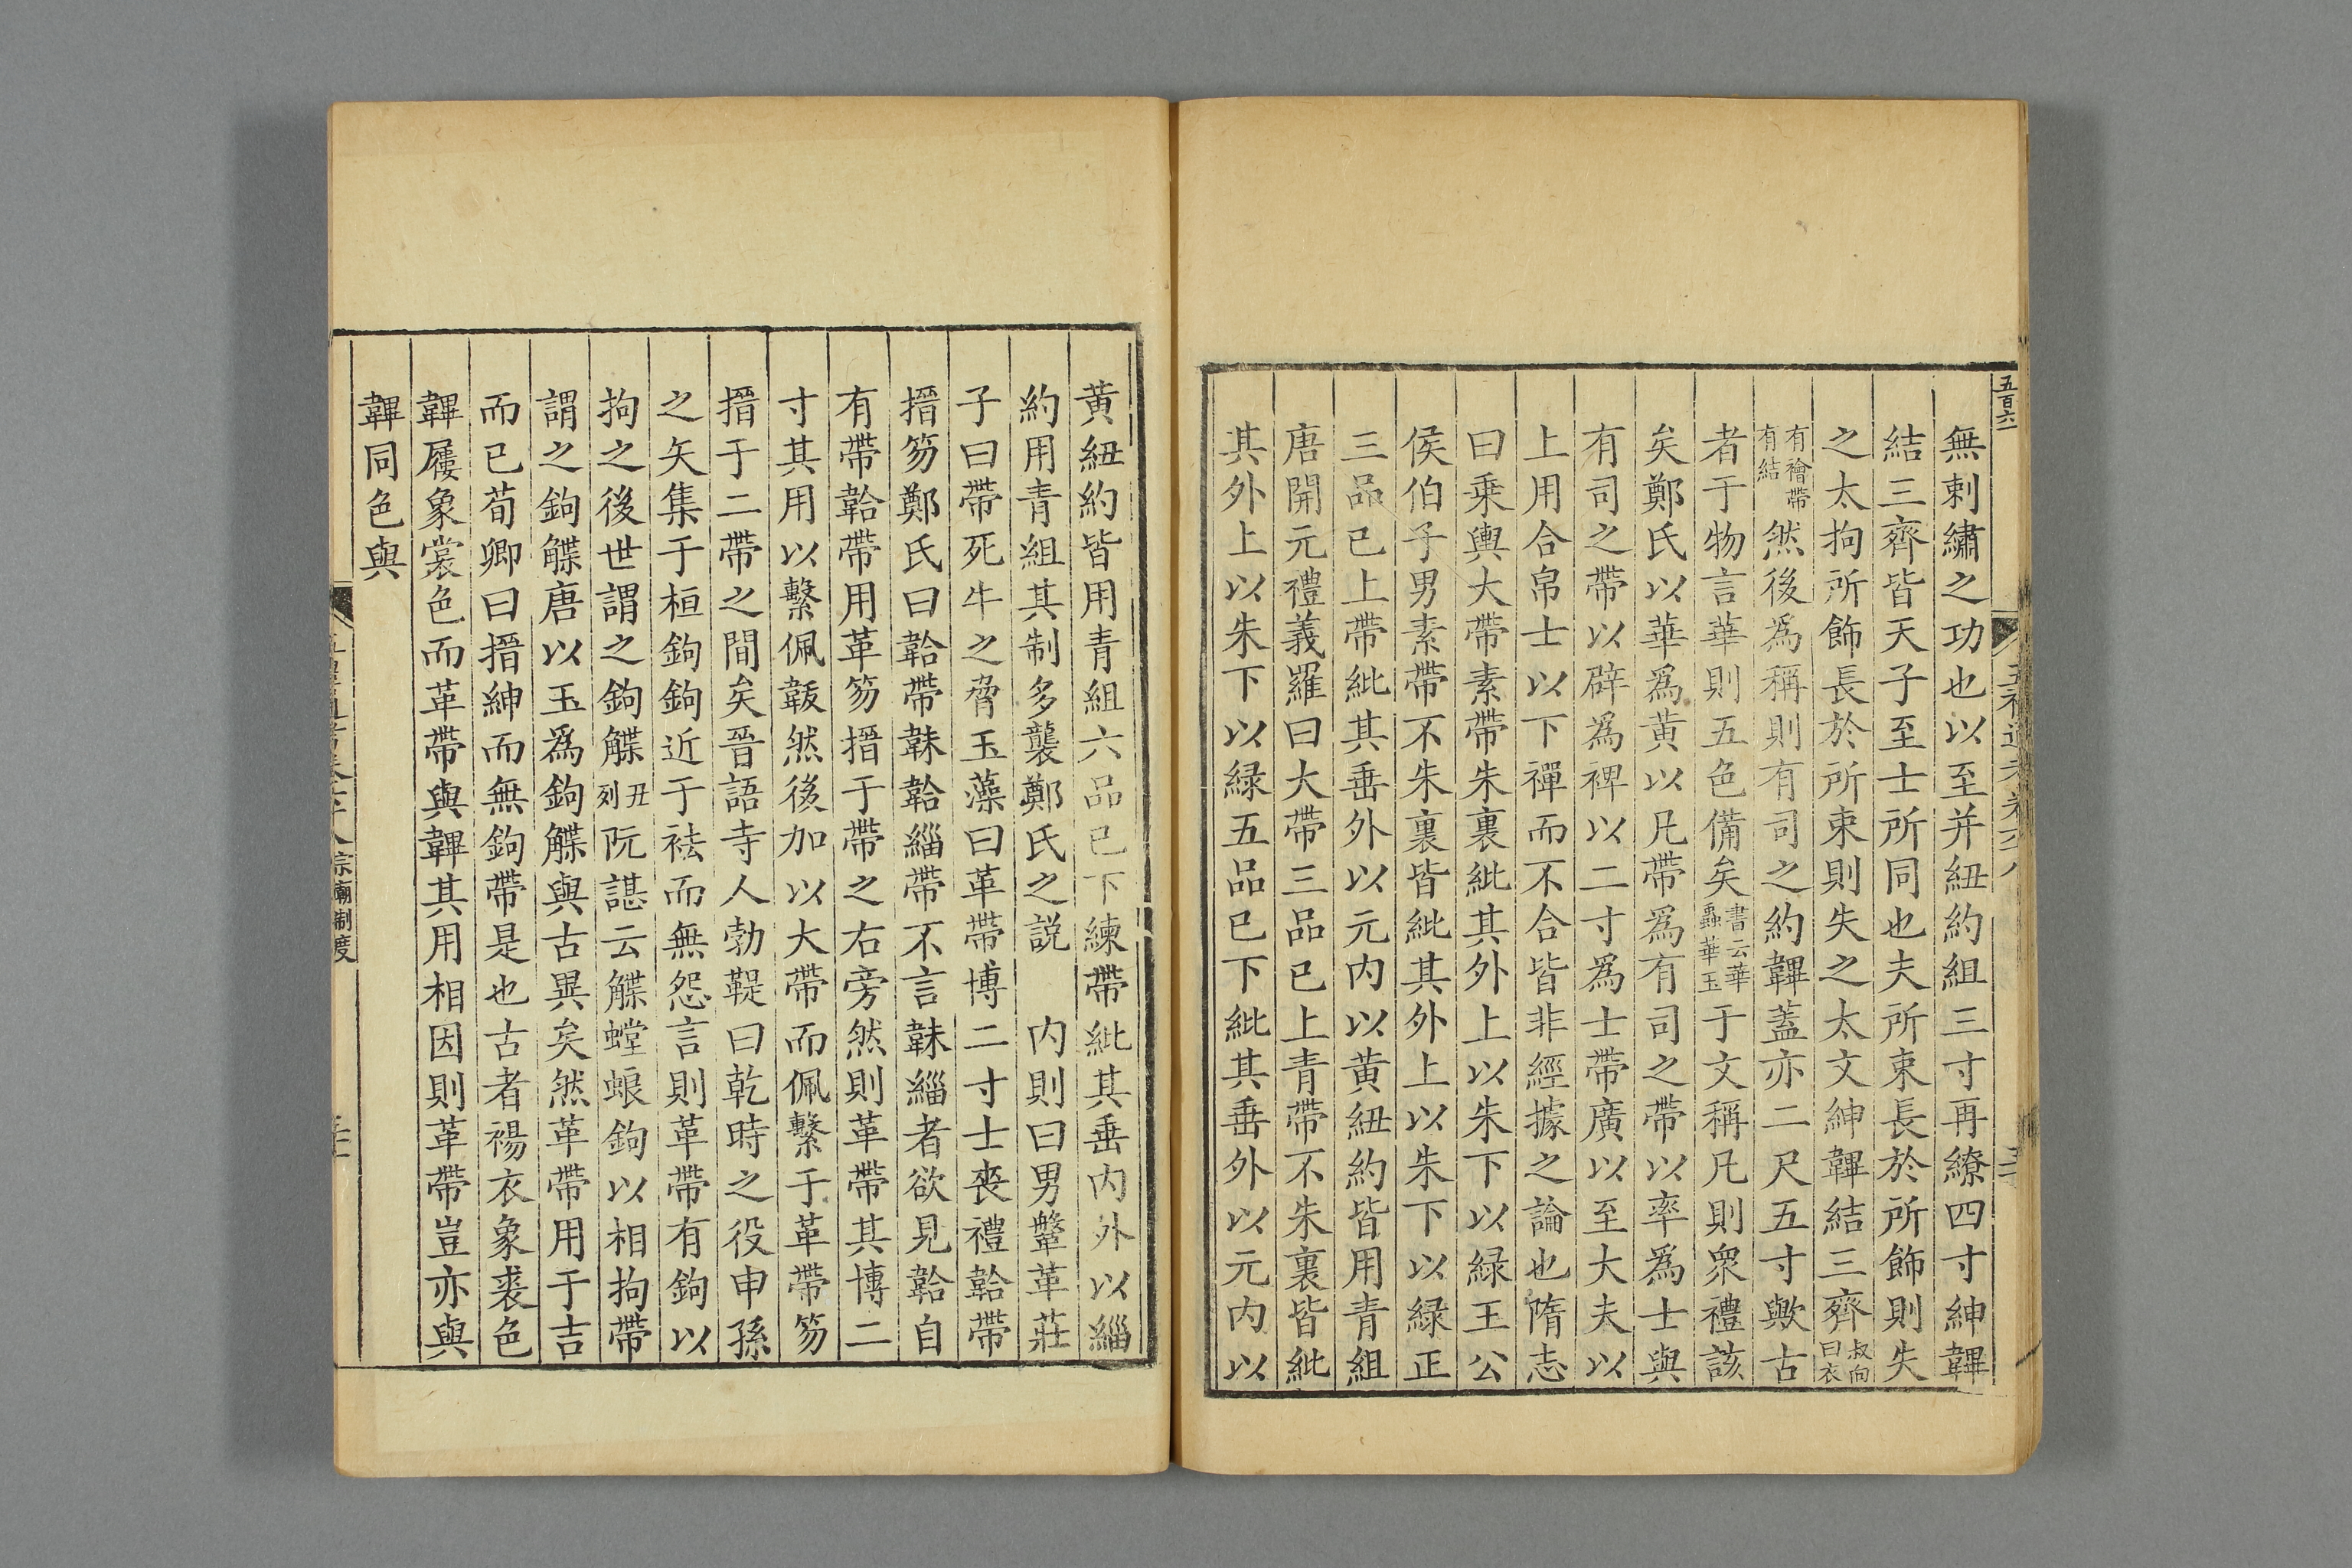 五百六
無刺繡之功也以至并紐約組三寸再繚四寸紳韠
結三齊皆天子至士所同也夫所束長於所飾則失
之太拘所飾長於所束則失之太文紳韠結三齊叔向曰衣
有襘帶有結然後為稱則有司之約韠蓋亦二尺五寸歟古
者于物言華則五色備矣書云華蟲華玉于文稱凡則衆禮該
矣鄭氏以華為黄以凡帶為有司之帶以率為士與
有司之帶以辟為裨以二寸為士帶廣以至大夫以
上用合帛士以下禪而不合皆非經據之論也隋志
曰乗輿大帶素帶朱裏紕其外上以朱下以緑王公
侯伯子男素帶不朱裏皆紕其外上以朱下以緑正
三品已上帶紕其垂外以元内以黄紐約皆用青組
唐開元禮義羅曰大帶三品已上青帶不朱裏皆紕
其外上以朱下以緑五品已下紕其垂外以元内以
黄紐約皆用青組六品已下練帶紕其垂内外以緇
約用青組其制多襲鄭氏之説　内則曰男鞶革莊
子曰帶死牛之脅玉藻曰革帶博二寸士喪禮韐帶
搢笏鄭氏曰韐帶韎韐緇帶不言韎緇者欲見韐自
有帶韐帶用革笏搢于帶之右旁然則革帶其博二
寸其用以繫佩韍然後加以大帶而佩繫于革帶笏
搢于二帶之間矣晉語寺人勃鞮曰乾時之役申孫
之矢集于桓鉤鉤近于袪而無怨言則革帶有鉤以
拘之後世謂之鉤䚢丑列阮諶云䚢螳蜋鉤以相拘帶
謂之鉤䚢唐以玉為鉤䚢與古異矣然革帶用于吉
而已荀卿曰搢紳而無鉤帶是也古者裼衣象裘色
韠屨象裳色而革帶與韠其用相因則革帶豈亦與
韠同色與
宗廟制度